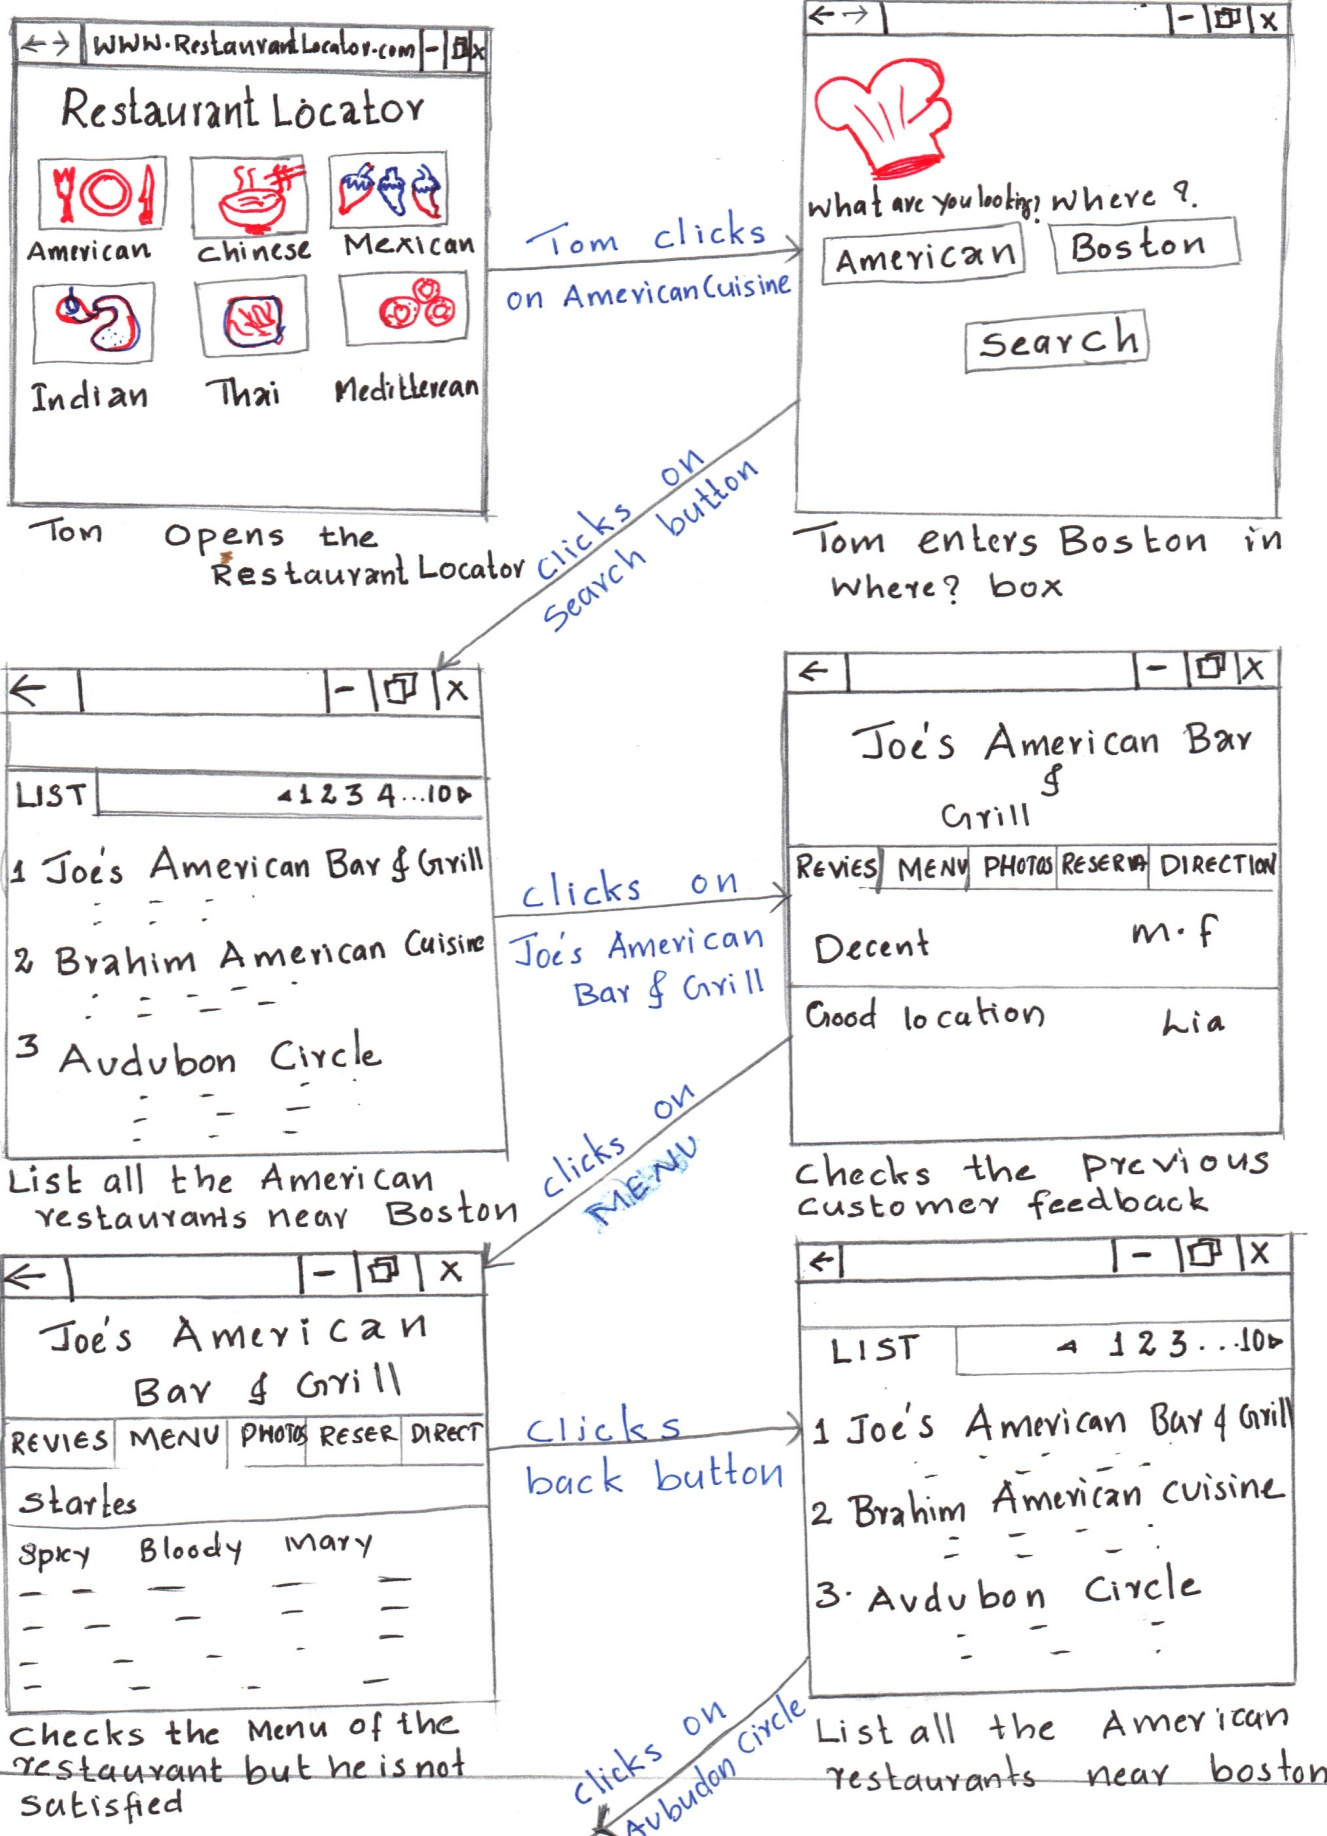 WWW.RestaurantLocator.com
Restaurant Locator
American Chinese Mexican
Indian Thai Meditterean
Tom Opens the
Restaurant Locator
Tom clicks
on American Cuisine
What are you looking? Where ?
American Boston
Search
Tom enters Boston in
Where? box
clicks on
Search button
LIST 1 2 3 4...10
1 Joe's American Bar & Grill
2 Brahim American Cuisine
3 Audubon Circle
List all the American
restaurants near Boston
clicks on
Joe's American
Bar & Grill
Joe's American Bar
&
Grill
REVIES MENU PHOTOS RESERVA DIRECTION
Decent m.f
Good location Lia
Checks the previous
customer feedback
clicks on
MENU
Joe's American
Bar & Grill
REVIES MENU PHOTOS RESER DIRECT
Startes
Spicy Bloody Mary
Checks the Menu of the
restaurant but he is not
satisfied
clicks
back button
LIST 1 2 3...10
1 Joe's American Bar & Grill
2 Brahim American cuisine
3. Audubon Circle
List all the American
restaurants near boston
clicks on
Aubudon Circle